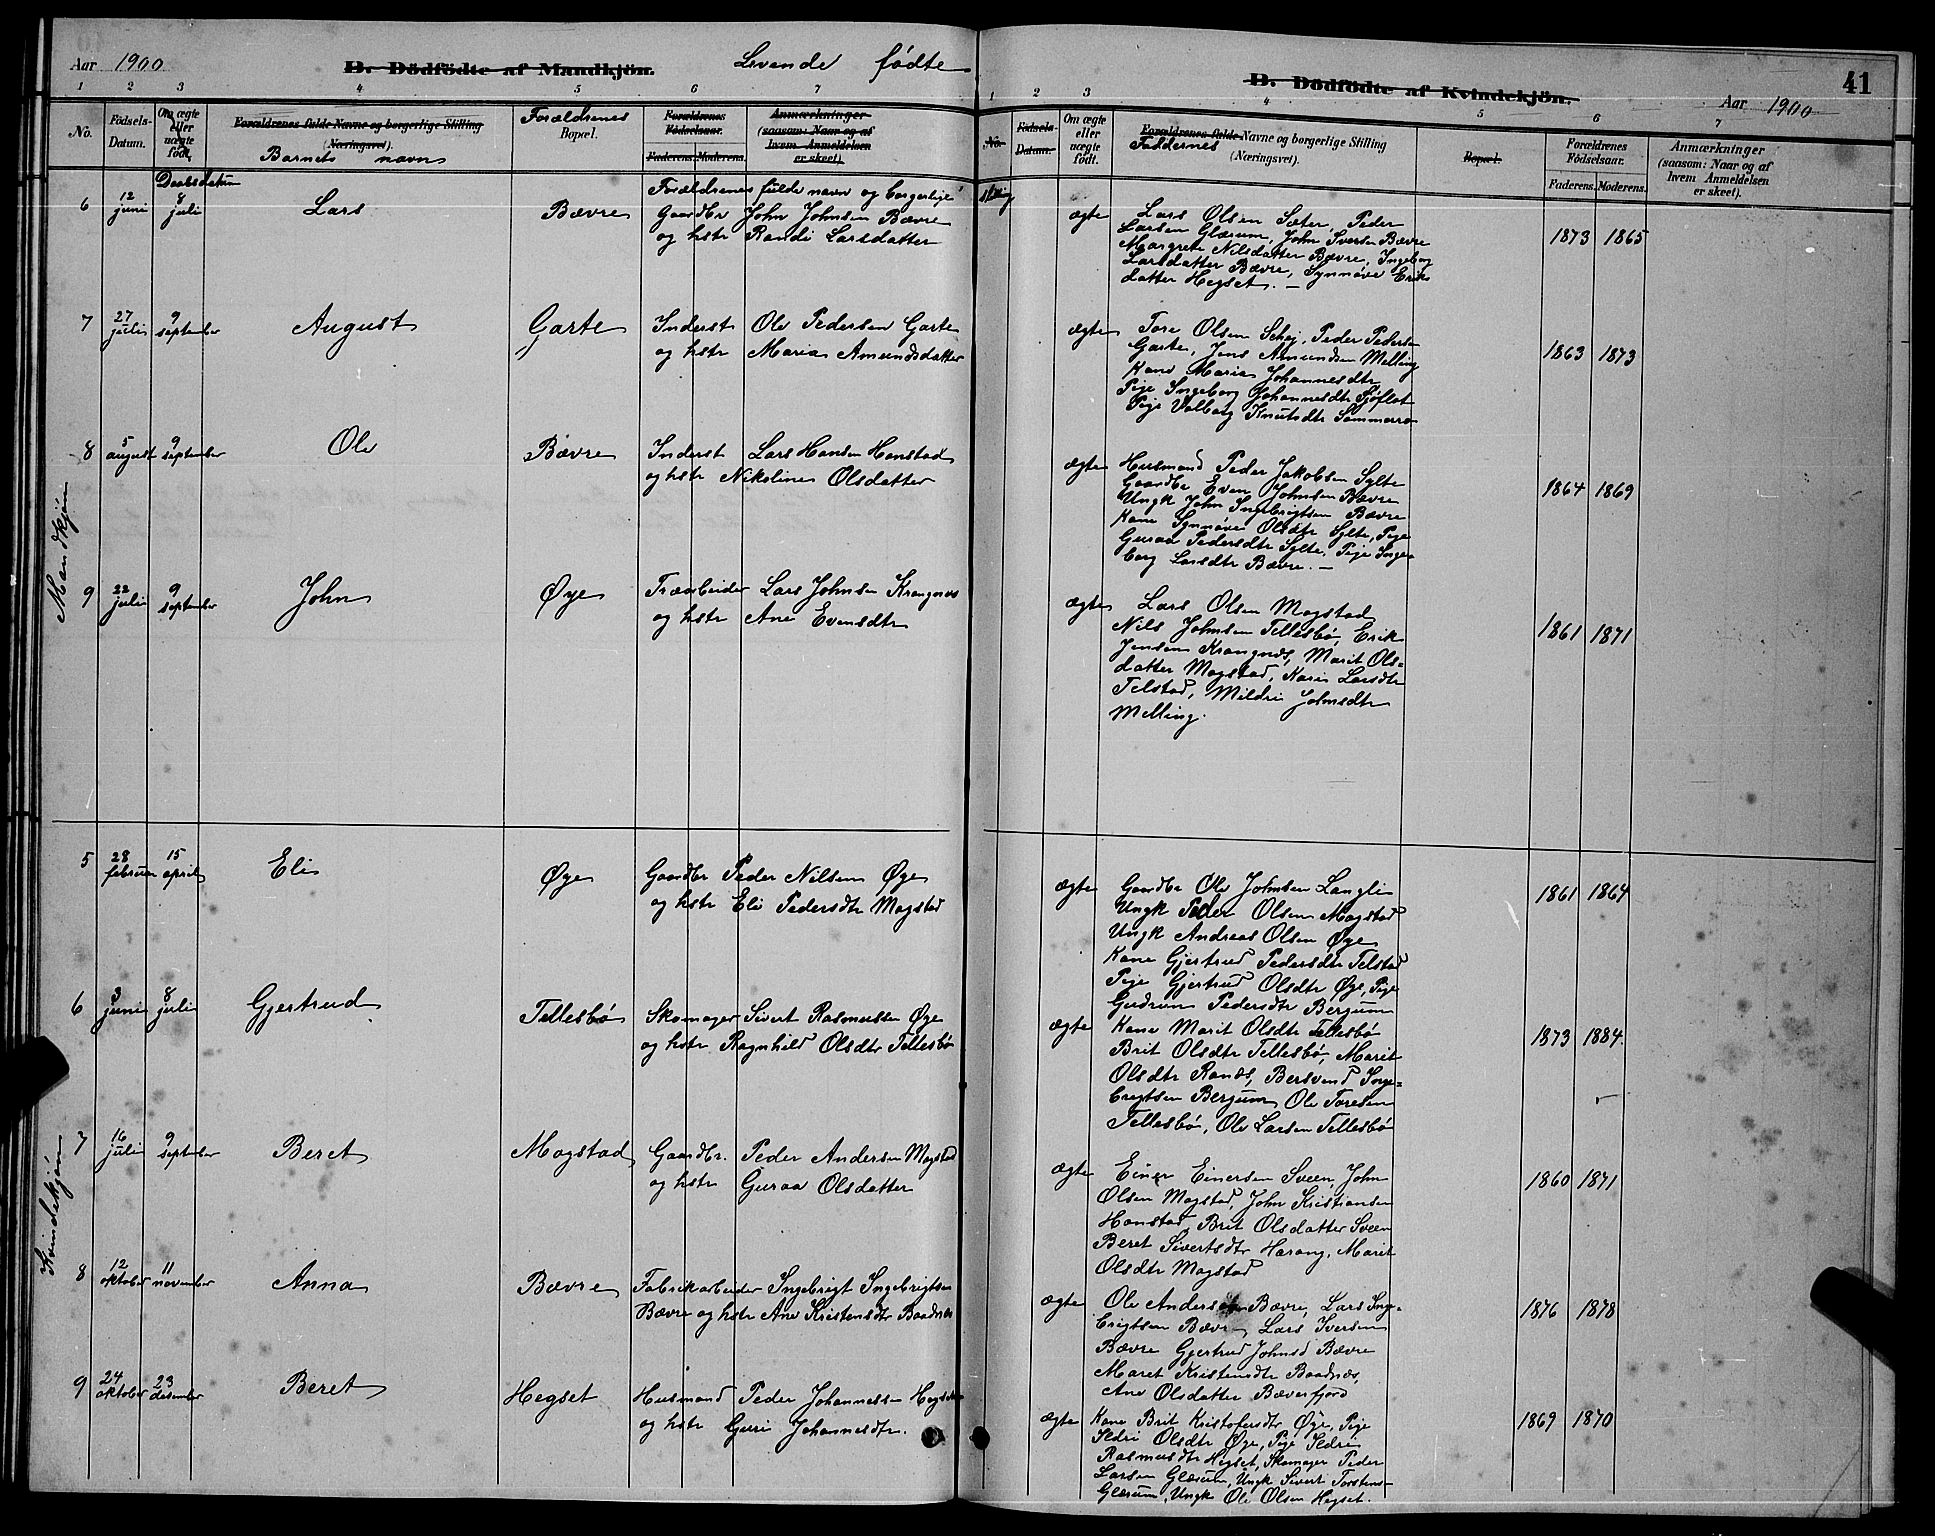 Aar 1900. D. Dödfödte af Mandkjön. Levende fødte
1 2 3 4 5 6 7
No. Födsels-Datum. Om ægte eller uægte födt. Forældrenes fulde Navne og borgerlige Stilling (Næringsvei). Forældrenes Bopæl. Forældrenes Födselsaar. Faderens. Moderens. Anmærkninger (saasom: Naar og af hvem Anmeldelsen er skeet).
Barnets navn
Daabsdatum
Forældrenes fulde navn og borgerlige
Mandkjøn
6 12 juni 8 juli Lars Bævre Gaardbr John Johnsen Bævre
og hstr Randi Larsdatter
7 27 juli 9 september August Garte Inderst Ole Pedersen Garte
og hstr Maria Amundsdatter
8 5 august 9 september Ole Bævre Inderst Lars Hansen Honstad
og hstr Nikoline Olsdatter
9 22 juli 9 september John Øye Træarbeider Lars Johnsen Krangnes
og hstr Ane Evensdtr
Kvindekjøn
5 28 februar 15 april Eli Øye Gaardbr Peder Nilsen Øye
og hstr Eli Pedersdtr Mogstad
6 3 juni 8 juli Gjertrud Tellesbø Skomager Sivert Rasmussen Øye
og hstr Ragnhild Olsdtr Tellesbø
7 16 juli 9 september Beret Mogstad Gaardbr. Peder Andersen Mogstad
og hstr Guraa Olsdatter
8 12 oktober 11 november Anna Bævre Fabrikarbeider Ingebrigt Ingebrigtsen
Bævre og hstr Ane Kristensdtr Baadnes
9 24 oktober 23 desember Beret Hegset Husmand Peder Johannessen Hegset
og hstr Guri Johannesdtr.
D. Dödfödte af Kvindekjön. Aar 1900 41
1 2 3 4 5 6 7
No. Födsels-Datum. Om ægte eller uægte födt. Forældrenes fulde Navne og borgerlige Stilling (Næringsvei). Bopæl. Forældrenes Födselsaar. Faderens. Moderens. Anmærkninger (saasom: Naar og af hvem Anmeldelsen er skeet).
Faddernes
ægte Lars Olsen Sæter, Peder 1873 1865
Larsen Glærum, John Iversen Bævre
Margrete Nilsdatter Bævre, Ingeborg
Larsdatter Bævre, Synnøve Eriks
datter Hegset. —
ægte Tore Olsen Schei, Peder Pedersen 1863 1873
Garte, Jens Amundsen Melling
Kone Maria Johannesdtr
Pige Ingeborg Johannesdtr Sjøflot
Pige Valborg Knutsdtr Sommerro
ægte Husmand Peder Jakobsen Sylte 1864 1869
Gaardbr Even Johnsen Bævre
Ungk John Ingebrigtsen Bævre
Kone Synnøve Olsdtr Sylte, Pige
Guraa Pedersdtr Sylte, Pige Inge
borg Larsdtr Bævre. —
ægte Lars Olsen Mogstad 1861 1871
Nils Johnsen Tellesbø, Erik
Jensen Krangnes, Marit Ols=
datter Mogstad, Kari Larsdtr
Telstad, Mildri Johnsdtr
Melling.
ægte Gaardbr Ole Johnsen Langli 1861 1864
Ungk Peder Olsen Mogstad
Ungk Andreas Olsen Øye
Kone Gjertrud Pedersdtr Telstad
Pige Gjertrud Olsdtr Øye, Pige
Gudrun Pedersdtr Bergum
ægte Kone Marit Olsdtr Tellesbø 1873 1884.
Brit Olsdtr Tellesbø, Marit
Olsdtr Ranes, Bersvend Inge=
brigtsen Bergum, Ole Toresen
Tellesbø, Ole Larsen Tellesbø
ægte Einer Einersen Sveen, John 1860 1871
Olsen Mogstad, John Kristiansen
Honstad, Brit Olsdatter Sveen
Beret Sivertsdtr Harang, Marit
Olsdtr Mogstad
ægte Ole Andersen Bævre, Lars Inge= 1876 1878
brigtsen Bævre, Lars Iversen
Bævre Gjertrud Johnsd Bævre
Maret Kristensdtr Baadnes,
Ane Olsdatter Bæverfjord
ægte Kone Brit Kristofersdtr Øye, Pige 1869 1870
Ildri Olsdtr Øye, Pige Ildri
Rasmusdtr Hegset, Skomager Peder
Larsen Glærum, Ungk Sivert Torstens-
Glærum, Ungk Ole Olsen Hegset.